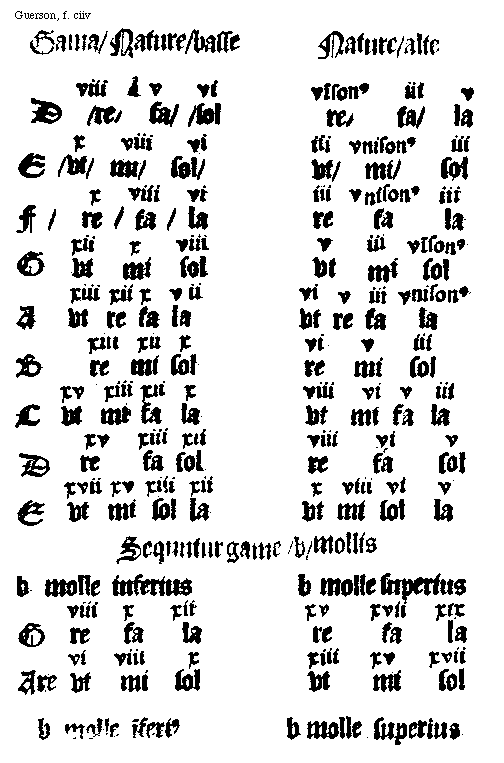 Guerson, f. ciiv
Gama/ Nature/basse Nature/alte
viii v vi vison⁹ iii v
D /re/ fa/ /sol re/ fa/ la
x viii vi iii vnison⁹ iii
E /vt/ mi/ sol/ vt/ mi/ sol
x viii vi iii vnison⁹ iii
F / re / fa / la re fa la
xii x viii v iii vison⁹
G vt mi sol vt mi sol
xiii xii x v ii vi v iii vnison⁹
A vt re fa la vt re fa la
xiii xii x vi v iii
B re mi sol re mi sol
xv xiii xii x viii vi v iii
C vt mi fa la vt mi fa la
xv xiii xii viii vi v
D re fa sol re fa sol
xvii xv xiii xii x viii vi v
E vt mi sol la vt mi sol la
Sequntur game /b/mollis
b molle inferius b molle superius
viii x xii xv xvii xix
G re fa la re fa la
vi viii x xiii xv xvii
Are vt mi sol vt mi sol
b molle iferi⁹ b molle superius